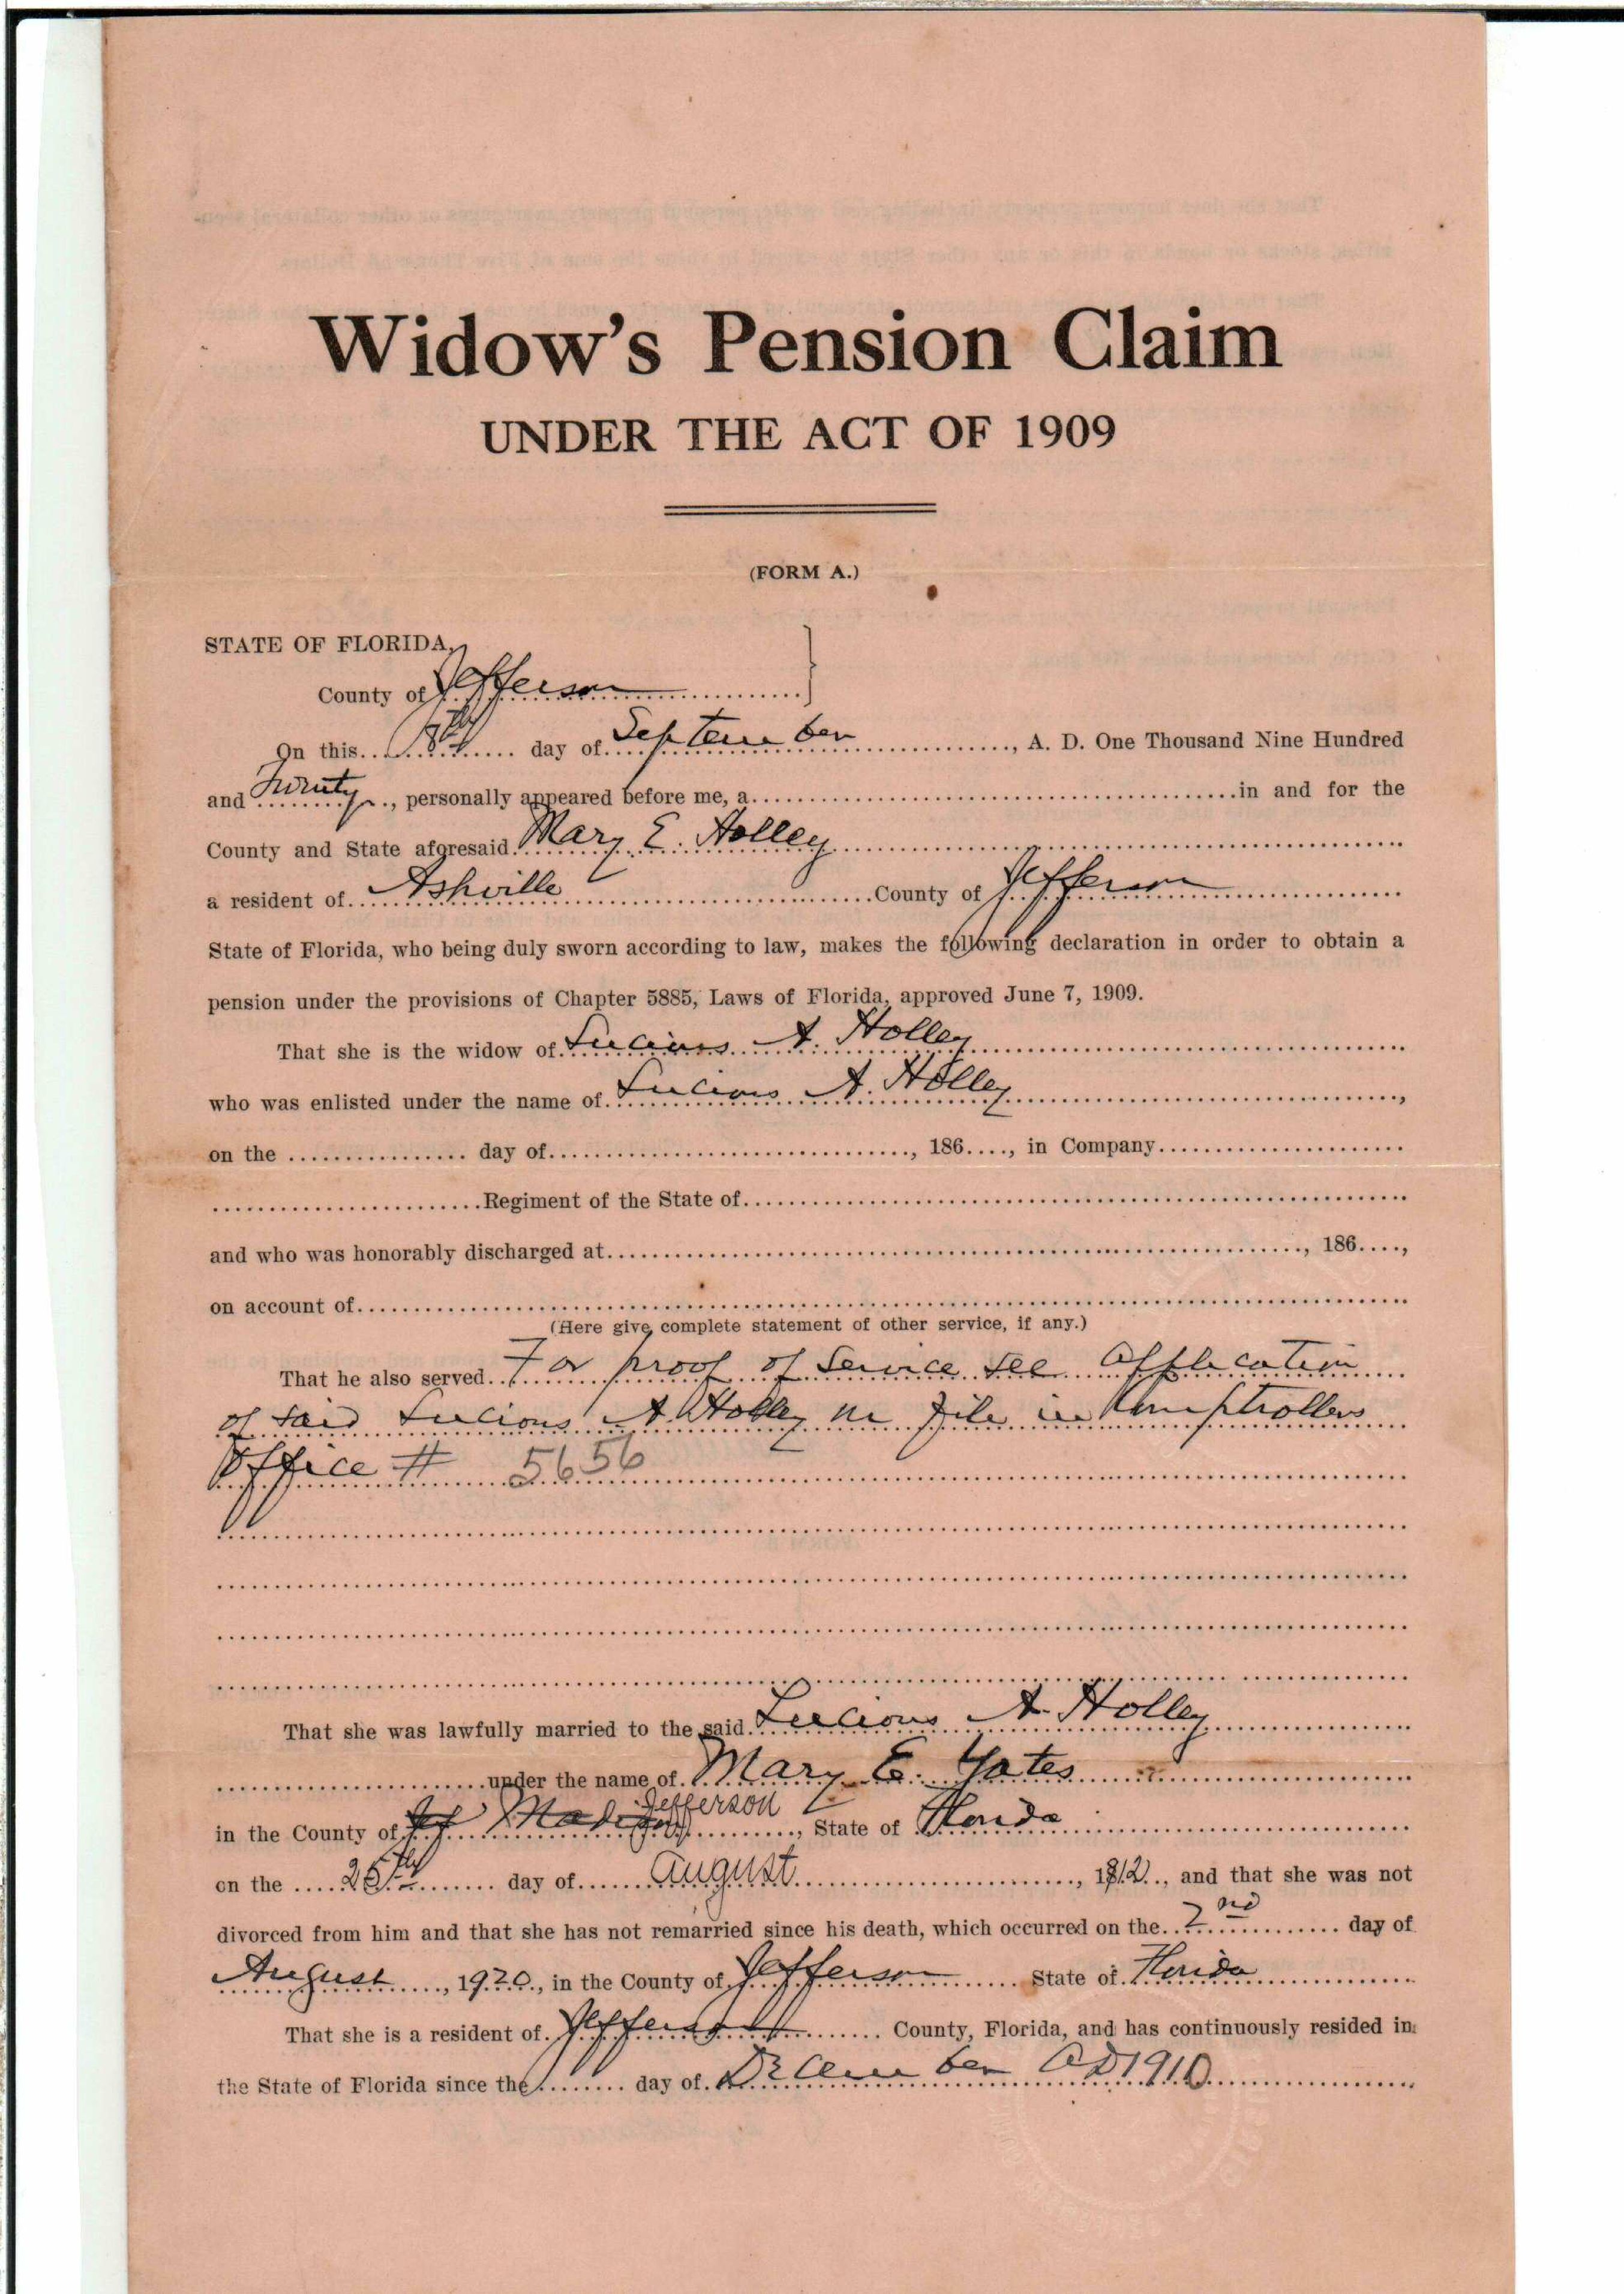 Widow's Pension Claim
UNDER THE ACT OF 1909
(FORM A.)
STATE OF FLORIDA,
County of Jefferson
On this 18th day of September, A. D. One Thousand Nine Hundred
and Twenty, personally appeared before me, a in and for the
County and State aforesaid Mary E. Holley
a resident of Ashville County of Jefferson
State of Florida, who being duly sworn according to law, makes the following declaration in order to obtain a
pension under the provisions of Chapter 5885, Laws of Florida, approved June 7, 1909.
That she is the widow of Lucious A. Holley
who was enlisted under the name of Lucious A. Holley,
on the day of, 186...., in Company
Regiment of the State of
and who was honorably discharged at, 186....,
on account of
(Here give complete statement of other service, if any.)
That he also served For proof of Service see application
of said Lucious A Holley on file in Comptrollers
Office # 5656
That she was lawfully married to the said Lucious A. Holley
under the name of Mary E. Yates
Jefferson
in the County of Madison, State of Florida
on the 25th day of August, 1912, and that she was not
divorced from him and that she has not remarried since his death, which occurred on the 2nd day of
August, 1920, in the County of Jefferson State of Florida
That she is a resident of Jefferson County, Florida, and has continuously resided in
the State of Florida since the day of December AD 1910